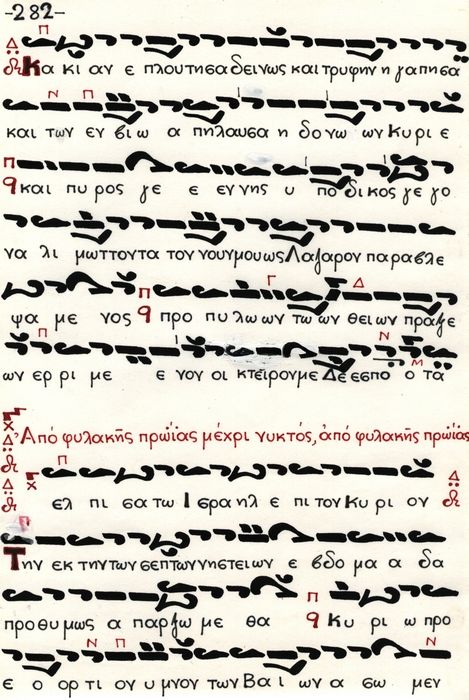 -282-
Κα κι αν ε πλουτησα δεινως και τρυφην η γαπησα
και των εν βι ω α πηλαυσα η δονω ων Κυρι ε
και πυ ρος γε ε εν νης υ πο δικος γε γο
να λι μωττοντα τον νουν μου ως Λαζαρον παραβλε
ψα με νος προ πυ λω ων τω ων θει ων πραξε
ων ερ ρι με ε νον οι κτειρον με Δε εσπο ο τα
Ἀπό φυλακῆς πρωΐας μέχρι νυκτός, ἀπό φυλακῆς πρωΐας
ελ πι σα τω Ισ ρα ηλ ε πι τον Κυ ρι ον
Την εκ την των σεπτων νηστειων ε βδο μα α δα
προ θυ μως α παρξω με θα Κυ ρι ω προ
ε ο ορ τι ον υ μνον των Βα ι ων α σω μεν